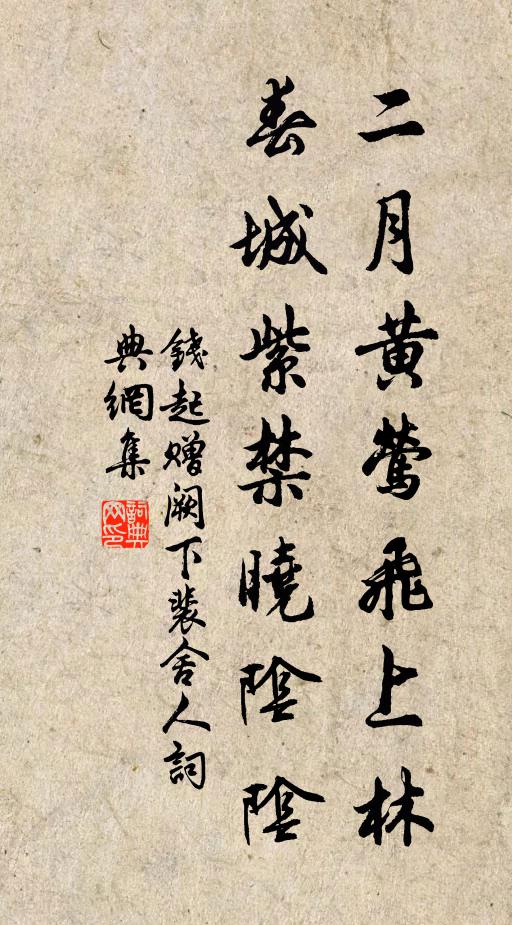 二月黃鶯飛上林
春城紫禁曉陰陰
錢起贈闕下裴舍人詞
典網集
詞典網印